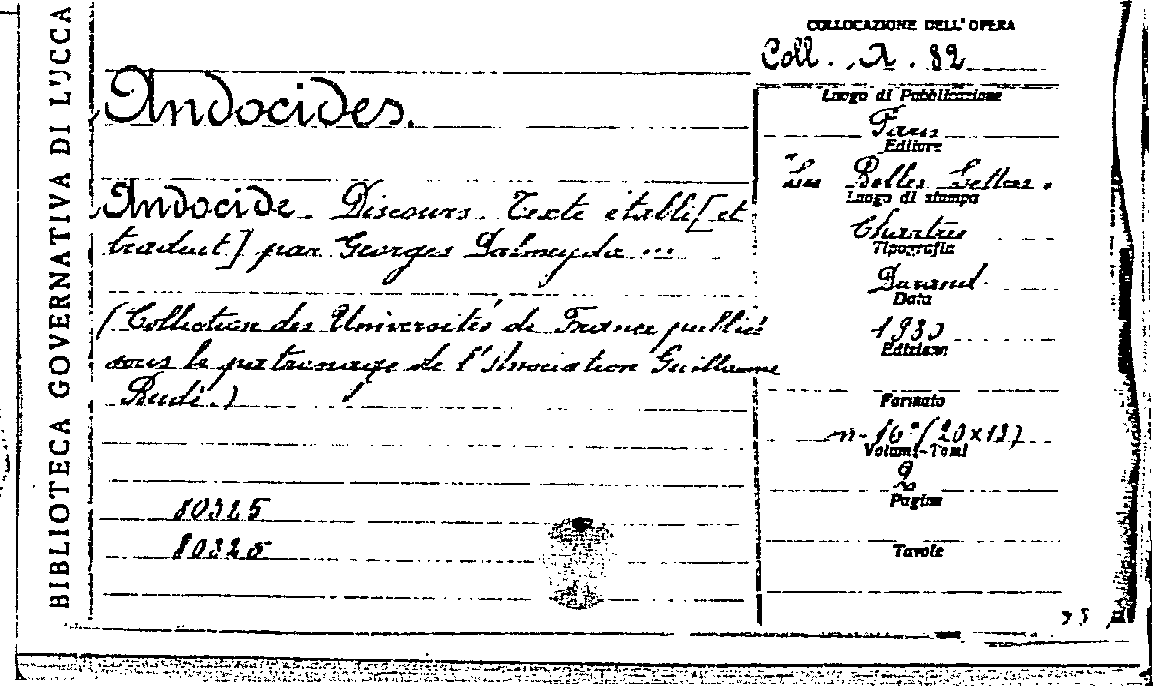 BIBLIOTECA GOVERNATIVA DI LUCCA
COLLOCAZIONE DELL'OPERA
Coll. A. 82
Andocides.
Andocide. Discours. Texte établi [et
traduit] par Georges Dalmeyda ...
(Collection des Universités de France publiée
sous le patronage de l'Association Guillaume
Budé.)
80325
80325
Luogo di Pubblicazione
Paris
Editore
"Les Belles Lettres.
Luogo di stampa
Chartres
Tipografia
Durand.
Data
1930
Edizione
Formato
in-16° (20x13)
Volumi-Tomi
2
Pagine
Tavole